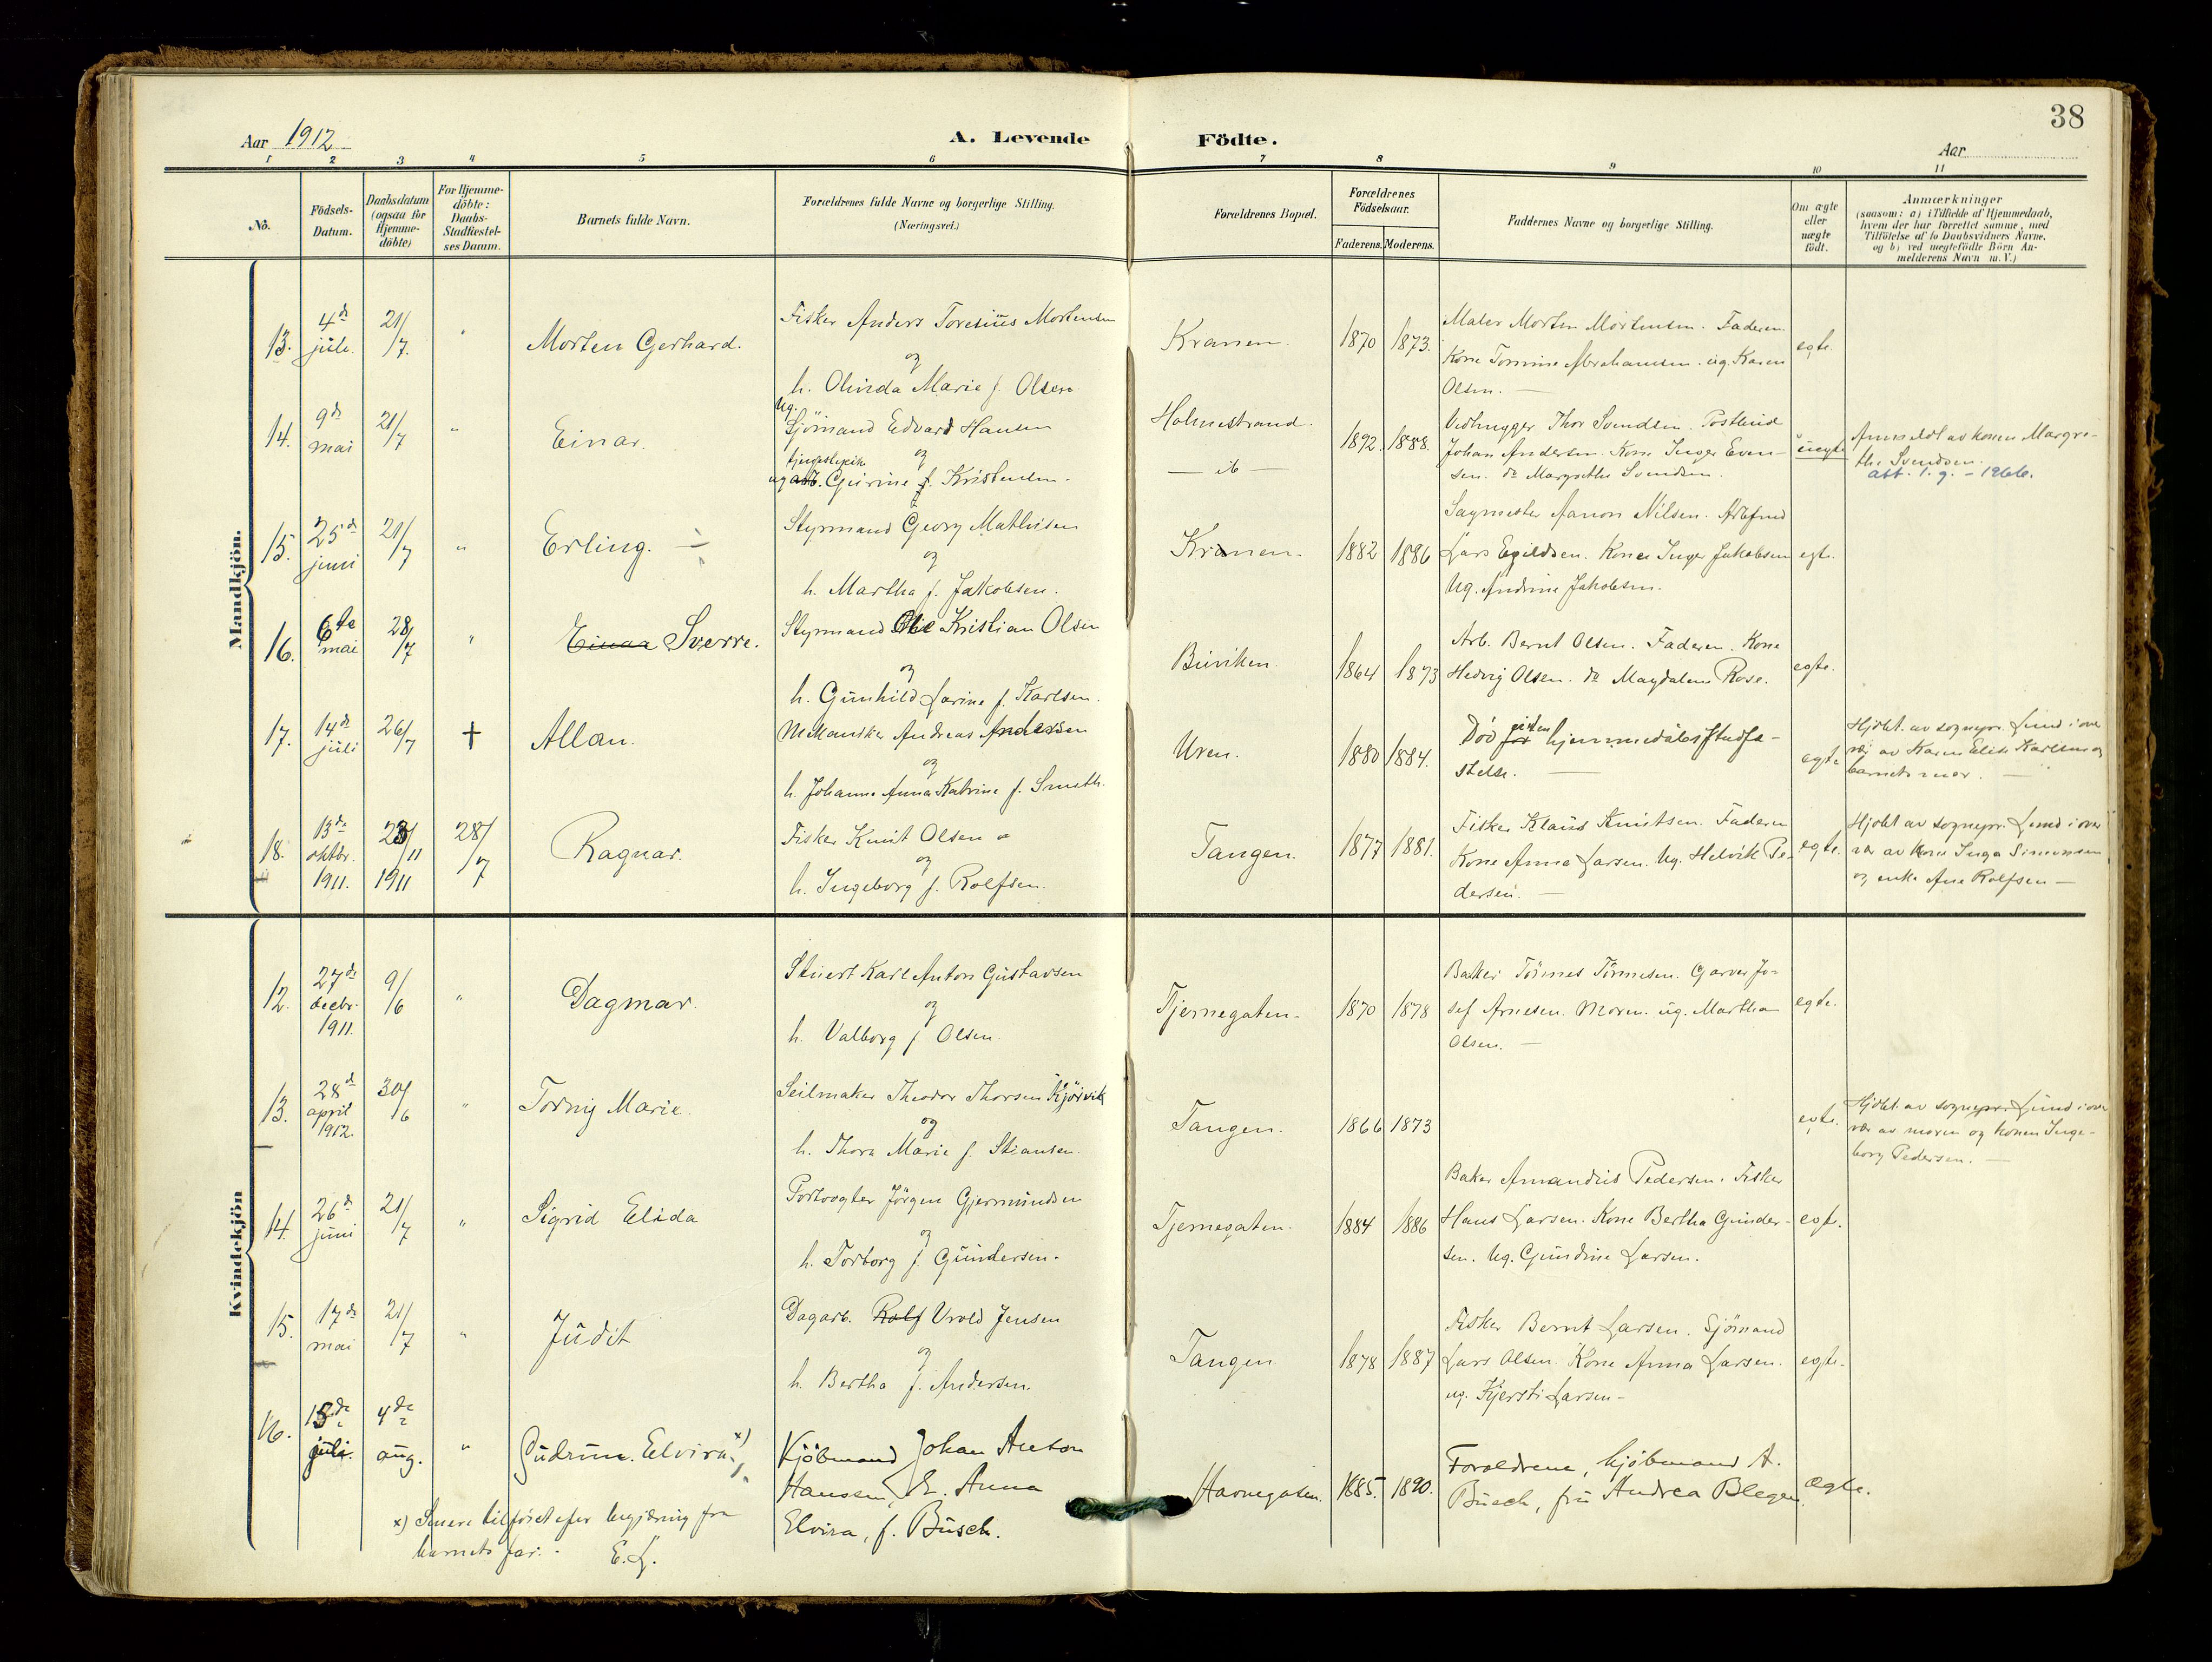 38
Aar 1912
A. Levende Födte.
Aar
1 2 3 4 5 6 7 8 9 10 11
No.
Födsels-
Datum.
Daabsdatum
(ogsaa for
Hjemme-
döbte)
For Hjemme-
döbte:
Daabs-
Stadfæstel-
ses Datum.
Barnets fulde Navn.
Forældrenes fulde Navne og borgerlige Stilling.
(Næringsvei.)
Forældrenes Bopæl.
Forældrenes
Födselsaar.
Faderens. Moderens.
Faddernes Navne og borgerlige Stilling.
Om ægte
eller
uægte
födt.
Anmærkninger
(saasom: a) i Tilfælde af Hjemmedaab,
hvem der har forrettet samme, med
Tilföielse af to Daabsvidners Navne,
og b) ved uægtefödte Börn An-
melderens Navn m. V.)
Mandkjön.
13. 4de juli. 21/7. " Morten Gerhard.
Fisker Anders Toresius Mortensen
og
h. Olivida Marie f. Olsen
Kranen. 1870 1873.
Maler Morten Mortensen. Faderen.
Kone Tomine Abrahamsen. ug. Karen
Olsen. —
egte.
14. 9de mai 21/7 " Einar.
Ug.
Sjömand Edvard Hansen
og
tjenestepike
ug arb. Gurine f. Kristensen.
Holmestrand.
— ib —
1892. 1888.
Vedhugger Thor Svendsen. Postbud
Johan Andersen. Kone Inger Even-
sen. do Margrethe Svendsen.
uegte
Anmeldt av konen Margre-
the Svendsen.
att. 1. g. - 1966.
15. 25de juni 21/7 " Erling. —
Styrmand Georg Mathisen
og
h. Martha f. Jakobsen.
Kranen. 1882 1886
Sagmester Aanon Nilsen. Arbfmd
Lars Egildsen. Kone Inger Jakobsen
Ug. Andrine Jakobsen.
egte.
16. 6te mai 28/7 " Einar Sverre.
Styrmand Ole Kristian Olsen
og
h. Gunhild Larine f. Karlsen.
Buviken. 1864 1873
Arb. Bernt Olsen. Faderen. Kone
Hedvig Olsen. do Magdalene Rose.
egte.
17. 14de juli 26/7 † Allan.
Mekaniker Andreas Andersen
og
h. Johanne Anna Katrine f. Smith.
Uren. 1880 1884.
Död uden
for hjemmedaabs stadfæ-
stelse. —
egte
Hjdbt. av sognepr. Lund i over
vær av Karen Elise Karlsen og
barnets mor. —
18. 13de oktbr. 1911. 23/11 1911 28/7 Ragnar.
Fisker Knut Olsen
og
h. Ingeborg f. Rolfsen.
Tangen. 1877 1881.
Fisker Klaus Knutsen. Faderen
Kone Anna Larsen. Ug. Helvik Pe-
dersen. —
egte.
Hjdbt av sognepr. Lund i over
vær av kone Inga Simonsen
og enke Ane Rolfsen —
Kvindekjön
12. 27de decbr. 1911. 9/6 " Dagmar.
Stuert Karl Anton Gustavsen
og
h. Valborg f. Olsen.
Tjernegaten. 1870 1878
Baker Törnes Törnesen. Garver Jo-
sef Arnesen. Moren. ug. Martha
Olsen. —
egte.
13. 28de april 1912. 30/6 " Torny Marie.
Seilmaker Theodor Thorsen Kjörvik
og
h. Thora Marie f. Stiansen.
Tangen. 1866 1873
egte.
Hjdbt. av sognepr. Lund i over
vær av moren og konen Inge-
borg Pedersen. —
14. 26de juni 21/7 " Sigrid Elida
Portvogter Jörgen Gjermundsen
og
h. Torborg f. Gundersen.
Tjernegaten. 1884 1886
Baker Amandus Pedersen. Fisker
Hans Larsen. Kone Bertha Gunder-
sen. Ug. Gundine Larsen.
egte.
15. 17de mai 21/7 " Judit
Dagarb. Rolf Urold Jensen
og
h. Bertha f. Andersen.
Tangen 1878 1887
Fisker Bernt Larsen. Sjömand
Lars Olsen. Kone Anna Larsen.
ug. Kjersti Larsen —
egte.
16. 15de juli. 4de aug. " Gudrun. Elvira x)
Kjöbmand Johan Anton
Hanssen, E. Anna
Elvira, f. Busch.
Havnegaten. 1885. 1890.
Foreldrene, kjöbmand A.
Busch, fru Andrea Blegen.
Ægte.
x) Senere tilföiet efter begjæring fra
barnets far. - E. L.